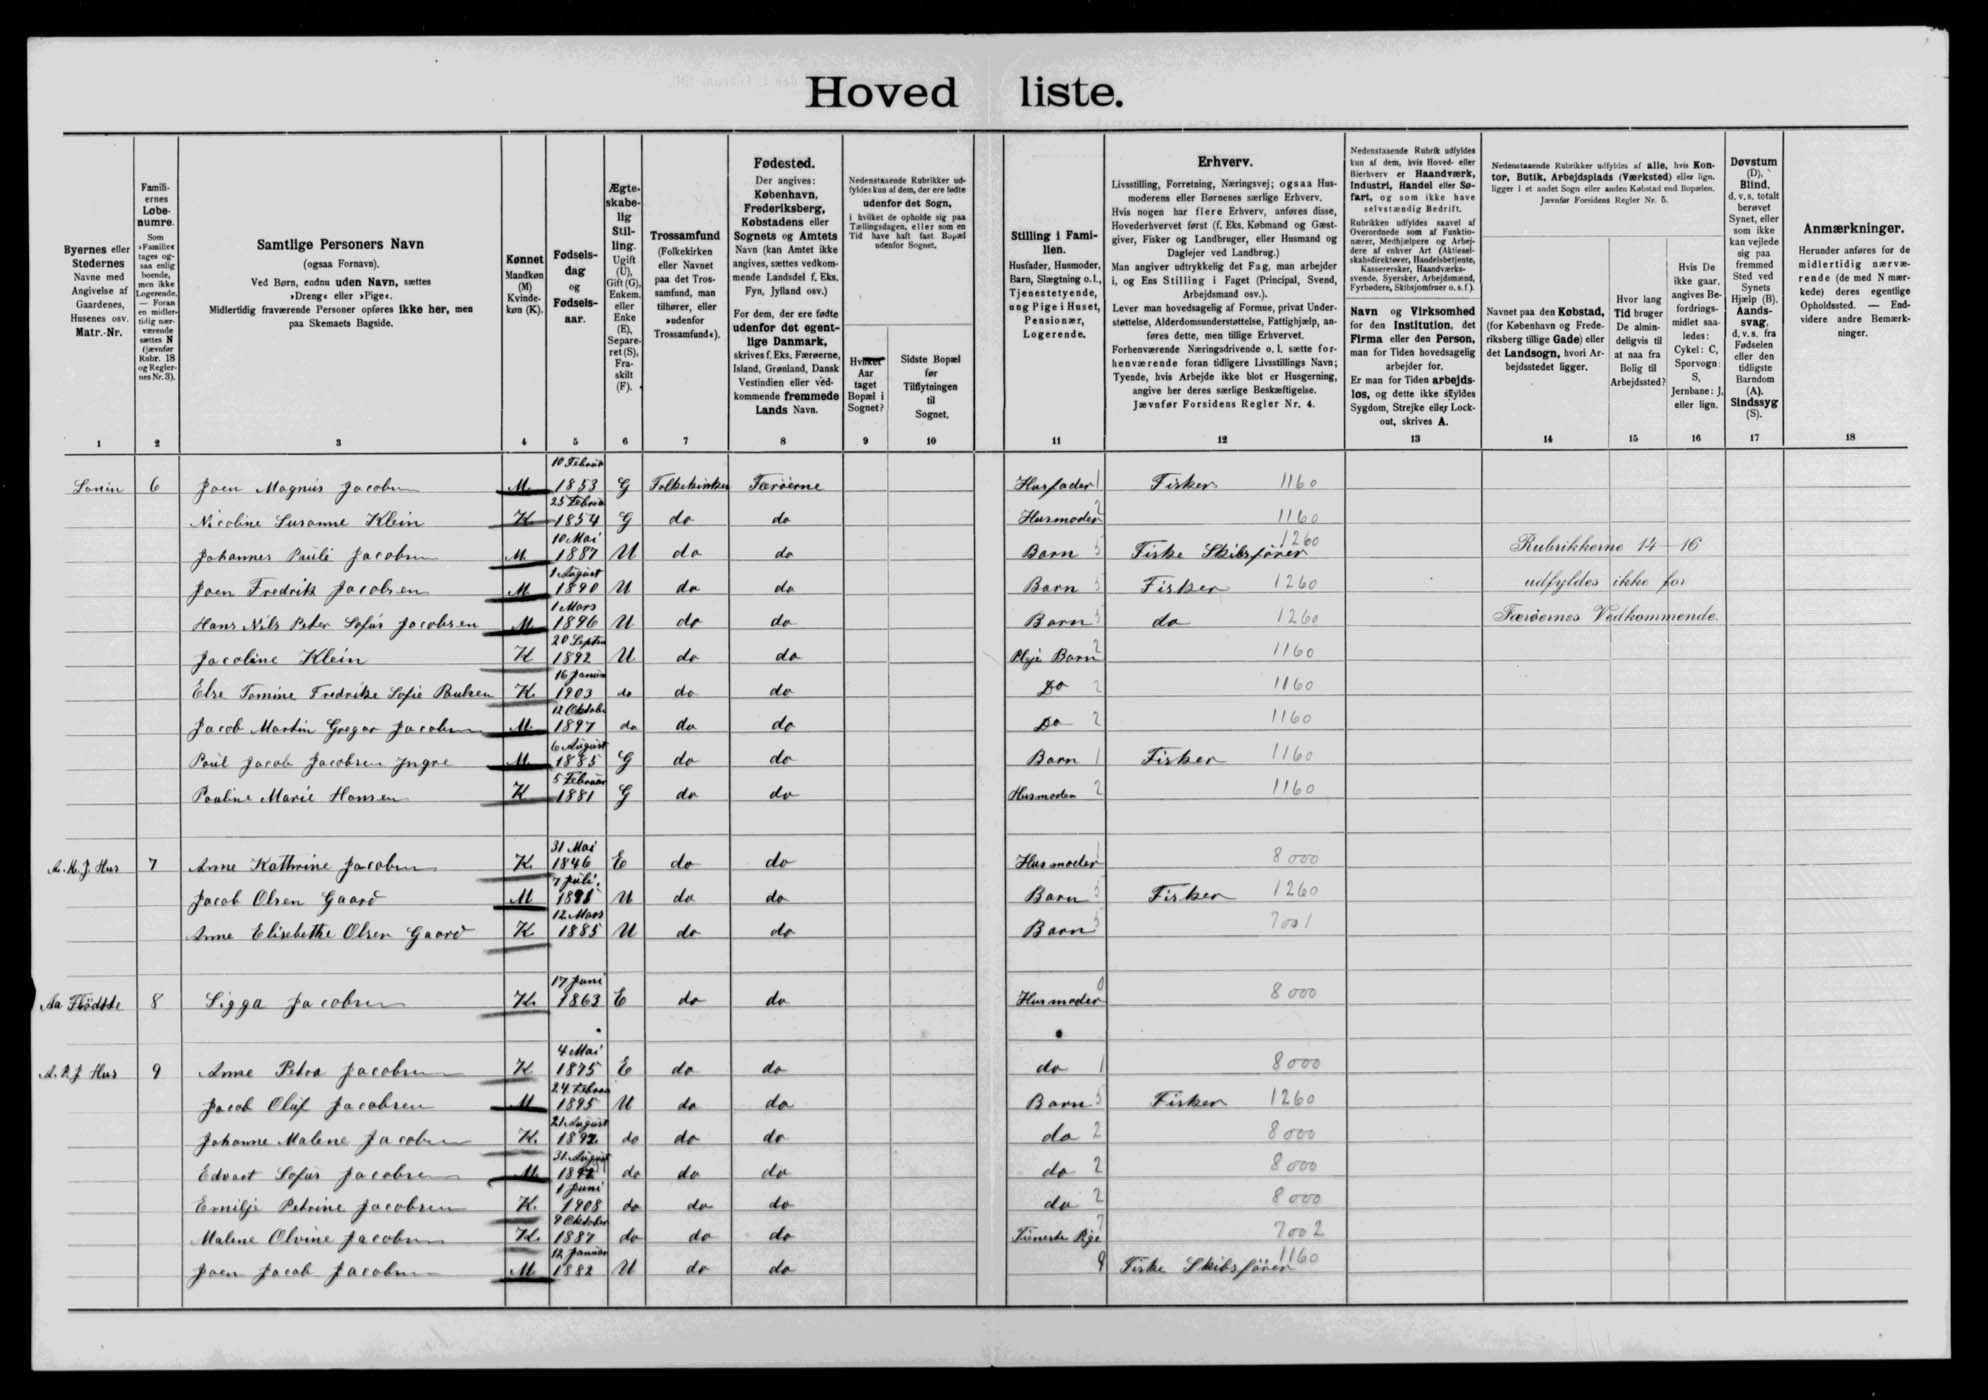 Hoved liste.
Byernes eller Stedernes Navne med Angivelse af Gaardenes, Husenes osv. Matr.-Nr.
1
Familiernes Løbenumre.
Som »Familie« tages ogsaa enlig boende, men ikke Logerende. — Foran en midlertidig nærværende sættes N (jævnfør Rubr. 18 og Regler-nes Nr. 3).
2
Samtlige Personers Navn
(ogsaa Fornavn).
Ved Børn, endnu uden Navn, sættes »Dreng« eller »Pige«.
Midlertidig fraværende Personer opføres ikke her, men paa Skemaets Bagside.
3
Kønnet
Mandkøn (M) Kvindekøn (K).
4
Fødselsdag og Fødselsaar.
5
Ægteskabelig Stilling.
Ugift (U), Gift (G), Enkem. eller Enke (E), Separeret (S), Fraskilt (F).
6
Trossamfund
(Folkekirken eller Navnet paa det Trossamfund, man tilhører, eller »udenfor Trossamfund«).
7
Fødested.
Der angives: København, Frederiksberg, Købstadens eller Sognets og Amtets Navn (kan Amtet ikke angives, sættes vedkommende Landsdel f. Eks. Fyn, Jylland osv.)
For dem, der ere fødte udenfor det egentlige Danmark, skrives f. Eks. Færøerne, Island, Grønland, Dansk Vestindien eller vedkommende fremmede Lands Navn.
8
Nedenstaaende Rubrikker udfyldes kun af dem, der ere fødte udenfor det Sogn, i hvilket de opholde sig paa Tællingsdagen, eller som en Tid have haft fast Bopæl udenfor Sognet.
Hvilket Aar taget Bopæl i Sognet?
9
Sidste Bopæl før Tilflytningen til Sognet.
10
Stilling i Familien.
Husfader, Husmoder, Barn, Slægtning o. l., Tjenestetyende, ung Pige i Huset, Pensionær, Logerende.
11
Erhverv.
Livsstilling, Forretning, Næringsvej; ogsaa Husmoderens eller Børnenes særlige Erhverv.
Hvis nogen har flere Erhverv, anføres disse, Hovederhvervet først (f. Eks. Købmand og Gæstgiver, Fisker og Landbruger, eller Husmand og Daglejer ved Landbrug.)
Man angiver udtrykkelig det Fag, man arbejder i, og Ens Stilling i Faget (Principal, Svend, Arbejdsmand osv.).
Lever man hovedsagelig af Formue, privat Understøttelse, Alderdomsunderstøttelse, Fattighjælp, anføres dette, men tillige Erhvervet.
Forhenværende Næringsdrivende o. l. sætte forhenværende foran tidligere Livsstillings Navn; Tyende, hvis Arbejde ikke blot er Husgerning, angive her deres særlige Beskæftigelse.
Jævnfør Forsidens Regler Nr. 4.
12
Nedenstaaende Rubrik udfyldes kun af dem, hvis Hoved- eller Bierhverv er Haandværk, Industri, Handel eller Søfart, og som ikke have selvstændig Bedrift.
Rubrikken udfyldes saavel af Overordnede som af Funktionærer, Medhjælpere og Arbejdere af enhver Art (Aktieselskabsdirektører, Handelsbetjente, Kasserersker, Haandværkssvende, Syersker, Arbejdsmænd, Fyrbødere, Skibsjomfruer o. s. f.).
Navn og Virksomhed for den Institution, det Firma eller den Person, man for Tiden hovedsagelig arbejder for.
Er man for Tiden arbejdsløs, og dette ikke skyldes Sygdom, Strejke eller Lockout, skrives A.
13
Nedenstaaende Rubrikker udfyldes af alle, hvis Kontor, Butik, Arbejdsplads (Værksted) eller lign. ligger i et andet Sogn eller anden Købstad end Bopælen.
Jævnfør Forsidens Regler Nr. 5.
Navnet paa den Købstad, (for København og Frederiksberg tillige Gade) eller det Landsogn, hvori Arbejdsstedet ligger.
14
Hvor lang Tid bruger De almindeligvis til at naa fra Bolig til Arbejdssted?
15
Hvis De ikke gaar, angives Befordringsmidlet saaledes: Cykel: C, Sporvogn: S, Jernbane: J, eller lign.
16
Døvstum (D), Blind, d. v. s. totalt berøvet Synet, eller som ikke kan vejlede sig paa fremmed Sted ved Synets Hjælp (B). Aandssvag, d. v. s. fra Fødselen eller den tidligste Barndom (A). Sindssyg (S).
17
Anmærkninger.
Herunder anføres for de midlertidig nærværende (de med N mærkede) deres egentlige Opholdssted. — Endvidere andre Bemærkninger.
18
6 Joen Magnus Jacobsen M 10 Februar 1853 G Folkekirken Færøerne Husfader 1 Fisker 1160
Nicoline Susanne Klein K 25 Februar 1854 G do do Husmoder 2 1160
Johannes Pauli Jacobsen M 10 Mai 1887 U do do Barn 5 Fiske Skibsfører 1260 Rubrikkerne 14 – 16
Joen Fredrik Jacobsen M 1 August 1890 U do do Barn 5 Fisker 1260 udfyldes ikke for
Hans Nils Peter Sofus Jacobsen M 1 Mars 1896 U do do Barn 5 do 1260 Færøernes Vedkommende.
Jacoline Klein K 20 Septbr 1892 U do do Pleje Barn 2 1160
Else Tomine Fredrikke Sofie Poulsen K. 16 Januar 1903 do do do Do 2 1160
Jacob Martin Gregor Jacobsen M 12 Oktober 1897 do do do Do 2 1160
Poul Jacob Jacobsen Yngre M 6 August 1885 G do do Barn 1 Fisker 1160
Pouline Marie Hansen K 5 Februar 1881 G do do Husmoder 2 1160
A. K. J. Hus 7 Anne Kathrine Jacobsen K 31 Mai 1846 E do do Husmoder 1 8000
Jacob Olsen Gaard M 7 Juli. U do do Barn 5 Fisker 1260
Anne Elisebethe Olsen Gaard K 12 Mars 1885 U do do Barn 5 7001
8 Sigga Jacobsen K. 17 Juni 1863 E do do Husmoder 0 8000
A. P. J Hus 9 Anne Petra Jacobsen K 4 Mai 1875 E do do do 1 8000
Jacob Oluf Jacobsen M 24 Februar 1895 U do do Barn 5 Fisker 1260
Johanne Malene Jacobsen K. 21 August do do do do 2 8000
Edvart Sofus Jacobsen M 31 August do do do do 2 8000
Emilje Petrine Jacobsen K. 1 Juni 1908 do do do do 2 8000
Malene Olvine Jacobsen K. 9 Oktober 1887 do do do Tieneste Pige 7 7002
Joen Jacob Jacobsen M 12 Januar 1882 U do do 9 Fiske Skibsfører 1160